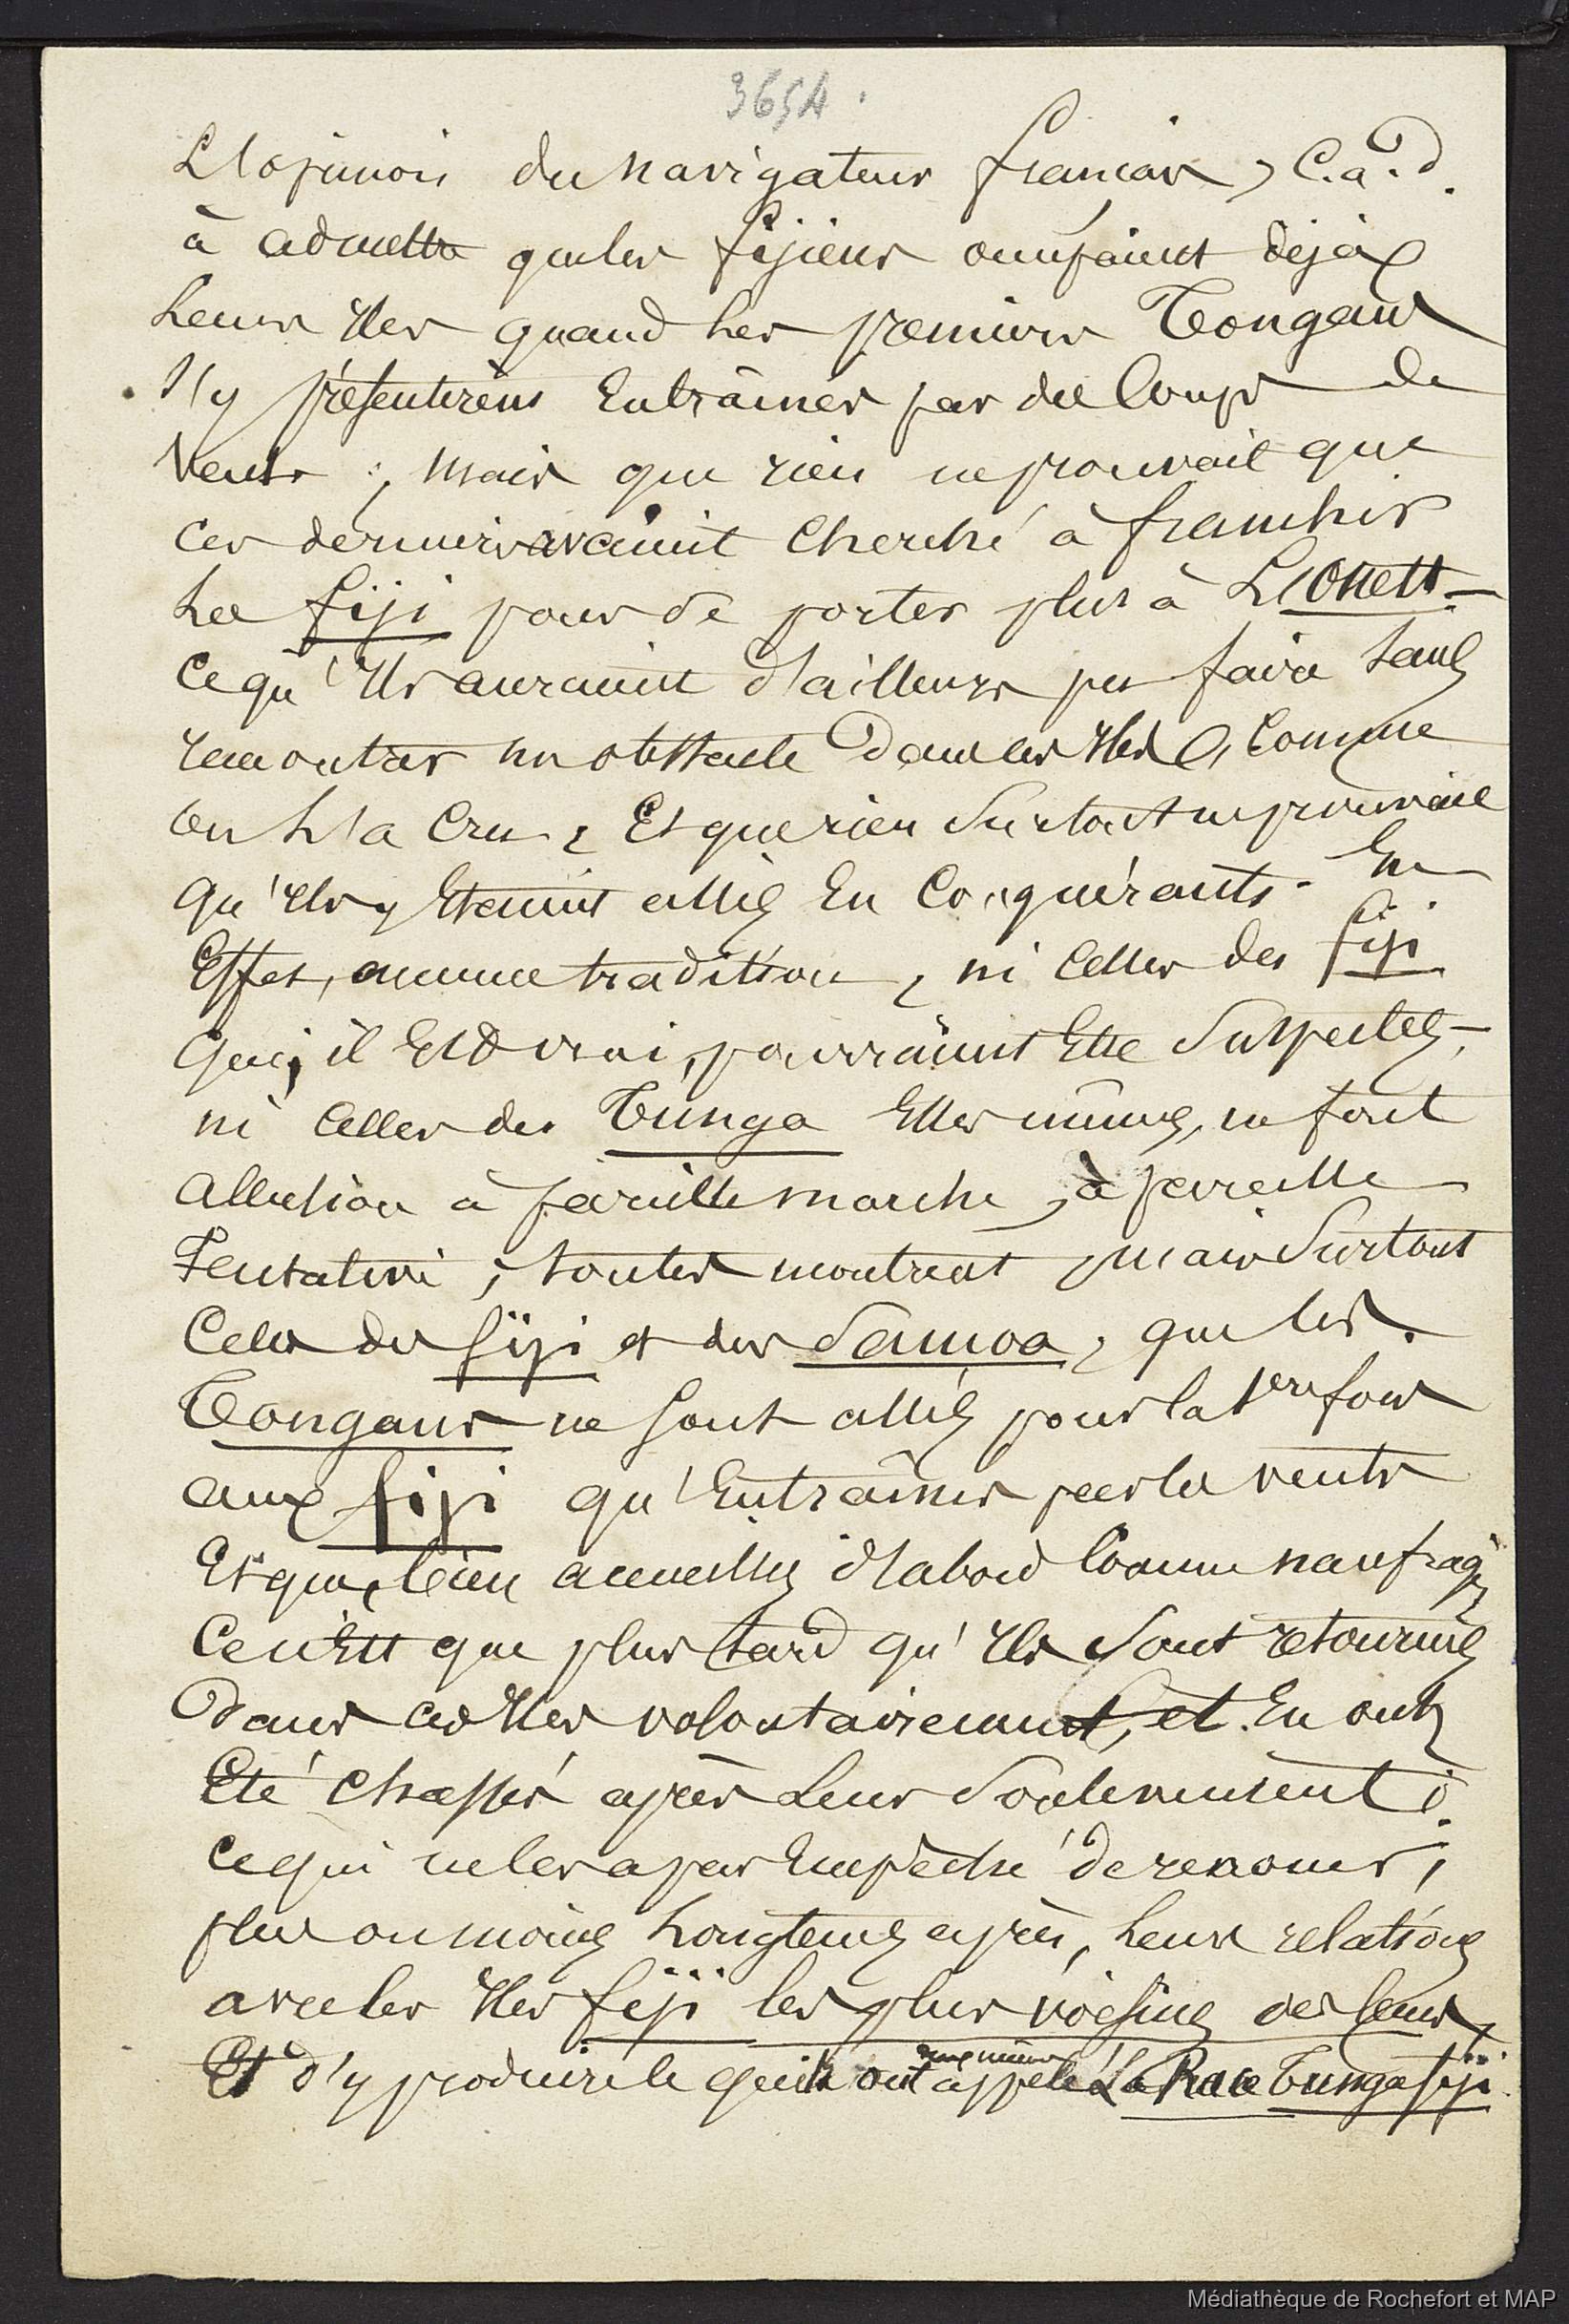 3654.
L'opinion du navigateur français, C.à.d.
à admettre que les fijiens occupaient déjà
leurs Iles quand les premiers Tongans
s'y présentèrent Entraînés par des Coups de
Vents ; mais que rien ne prouvait que
ces derniers avaient Cherché à franchir
les fiji pour se porter plus à L'Ouest –
Ce qu'Ils auraient d'ailleurs pu faire sans
rencontrer un obstacle dans ces Iles, Comme
on l'a Cru, Et que rien surtout ne prouvait
qu'Ils y Etaient allés En Conquérants. En
Effet, aucune tradition, ni celles des fiji
qui, il Est vrai, pourraient Etre suspectes, –
ni Celles des Tunga Elles mêmes, ne font
allusion à pareille marche, à pareille
Tentative ; toutes montrent, mais Surtout
Celles des fiji et des Samoa, que les
Tongans ne sont allés pour la 1ère fois
aux fiji qu'Entraînés par les vents
Et que, bien accueillis d'abord Comme naufragés
Ce n'Est que plus tard qu'Ils sont retournés
Dans ces Iles volontairement, et En ont
Eté Chassés après Leur Soulèvement ;
Ce qui ne les a pas Empêché de renouer,
plus ou moins Longtems après, leurs relations
avec les Iles fiji les plus voisines des leurs,
Et d'y produire le
qu'ils ont appelé La Race Tunga fiji.
Médiathèque de Rochefort et MAP